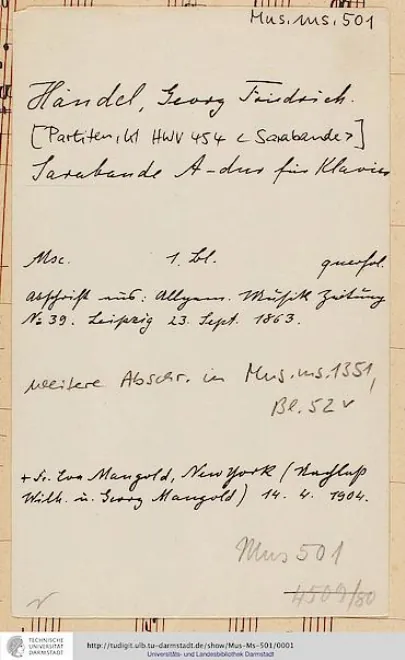 Mus.ms.501
Händel, Georg Friedrich.
[Partiten, kl HWV 454 <Sarabande>]
Sarabande A-dur für Klavier
Msc. 1. Bl. querfol.
Abschrift aus: Allgem. Musik Zeitung
No 39. Leipzig 23. Sept. 1863.
weitere Abschr. in Mus.ms.1351,
Bl. 52v
Mangold, New York (Nachlaß
Wilh. u. Georg Mangold) 14. 4. 1904.
Mus 501
4509/80
TECHNISCHE
UNIVERSITÄT
DARMSTADT
http://tudigit.ulb.tu-darmstadt.de/show/Mus-Ms-501/0001
Universitäts- und Landesbibliothek Darmstadt